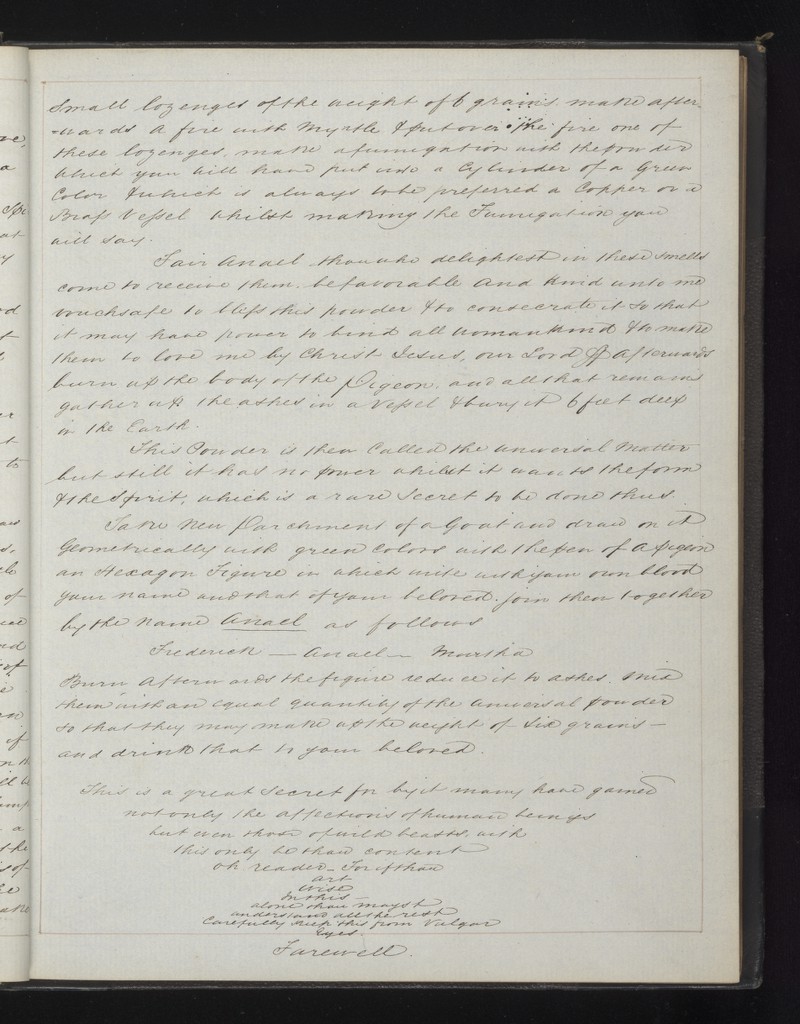 Small lozenges of the weight of 6 grains. make after-
-wards a fire with Myrtle & put over the fire one of
these lozenges, make a fumigation with the powder
which you will have put into a Cylinder of a Green
Color & which is always to be preferred a Copper or a
Brass Vessel whilst making the Fumigation you
will say.
Fair Anael, thou who delightest in these smells
come to receive them. be favorable and kind unto me
vouchsafe to bless this powder & to consecrate it so that
it may have power to bind all womankind & to make
them to love me by Christ Jesus, our Lord Afterwards
burn up the body of the Pigeon, and all that remains
gather up the ashes in a Vessel & bury it 6 feet deep
in the Earth.
This Powder is then Called the universal Matter
but still it has no power whilst it wants the form
& the Spirit, which is a rare Secret to be done thus.
Take New Parchment of a Goat and draw on it
Geometrically with green Colors with the pen of a pigeon
an Hexagon Figure in which write with your own blood
your name and that of your beloved. join them together
by the name Anael as follows
Frederick — Anael — Martha
Burn Afterwards the figure reduce it to ashes. mix
them with an equal quantity of the universal powder
so that they may make up the weight of Six grains —
and drink that to your beloved.
This is a great Secret for by it many have gained
not only the affections of human beings
but even those of wild beasts, with
this only be thou content
oh reader — For if thou
art
wise
In this —
alone thou mayst
understand all the rest
Carefully keep this from Vulgar
Eyes.
Farewell.